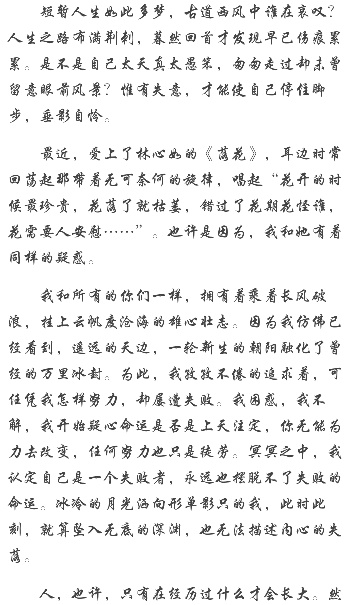 短暂人生如此多梦，古道西风中谁在哀叹？
人生之路布满荆刺，蓦然回首才发现早已伤痕累
累。是不是自己太天真太愚笨，匆匆走过却未曾
留意眼前风景？惟有失意，才能使自己停住脚
步，垂影自怜。
最近，爱上了林心如的《落花》，耳边时常
回荡起那带着无可奈何的旋律，唱起“花开的时
候最珍贵，花落了就枯萎，错过了花期花怪谁，
花需要人安慰……”。也许是因为，我和她有着
同样的疑惑。
我和所有的你们一样，拥有着乘着长风破
浪，挂上云帆度沧海的雄心壮志。因为我仿佛已
经看到，遥远的天边，一轮新生的朝阳融化了曾
经的万里冰封。为此，我孜孜不倦的追求着，可
任凭我怎样努力，却屡遭失败。我困惑，我不
解，我开始疑心命运是否是上天注定，你无能为
力去改变，任何努力也只是徒劳。冥冥之中，我
认定自己是一个失败者，永远也摆脱不了失败的
命运。冰冷的月光洒向形单影只的我，此时此
刻，就算坠入无底的深渊，也无法描述内心的失
落。
人，也许，只有在经历过什么才会长大。然